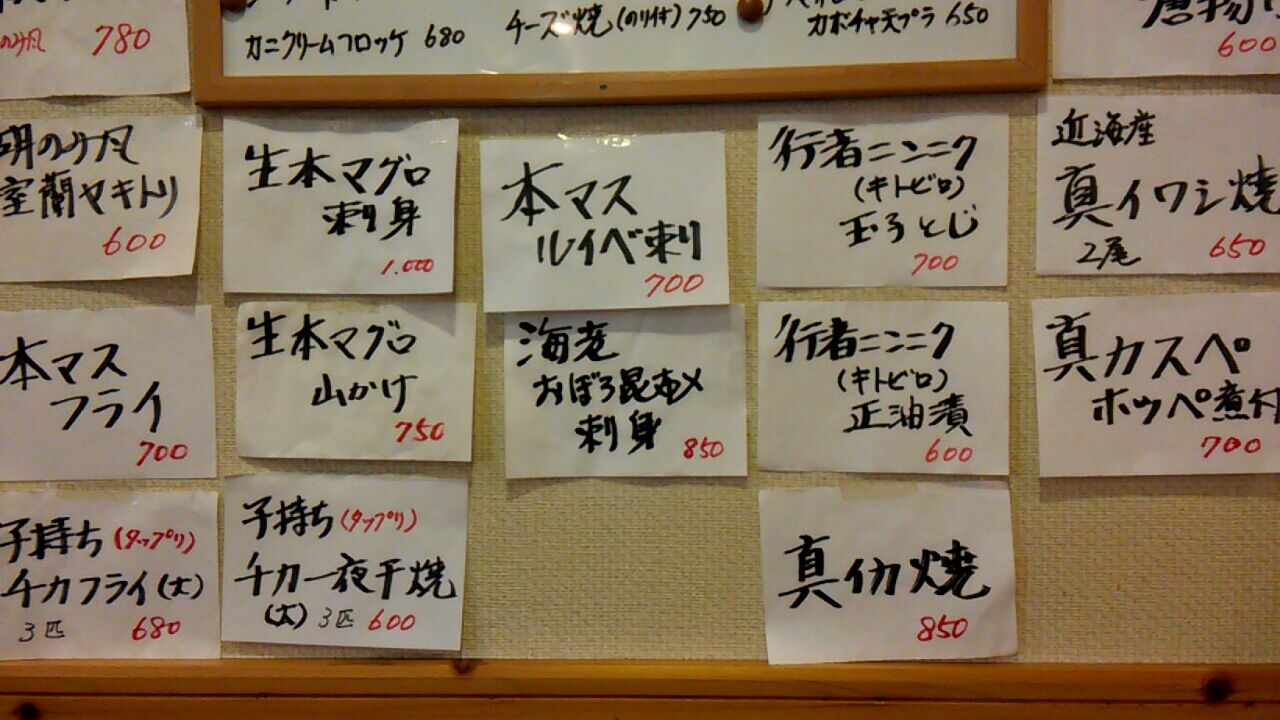 780
カニクリームコロッケ 680
チーズ焼(のり付)750
カボチャ天プラ 650
唐揚
600
明のみ風
室蘭ヤキトリ
600
生本マグロ
刺身
1.000
本マス
ルイベ刺
700
行者ニンニク
(キトビロ)
玉子とじ
700
近海産
真イワシ焼
2尾 650
本マス
フライ
700
生本マグロ
山かけ
750
海老
おぼろ昆布〆
刺身 850
行者ニンニク
(キトビロ)
正油漬
600
真カスペ
ホッペ煮付
700
子持ち(タップリ)
チカフライ(大)
3匹 680
子持ち(タップリ)
チカ一夜干焼
(大) 3匹 600
真イカ焼
850